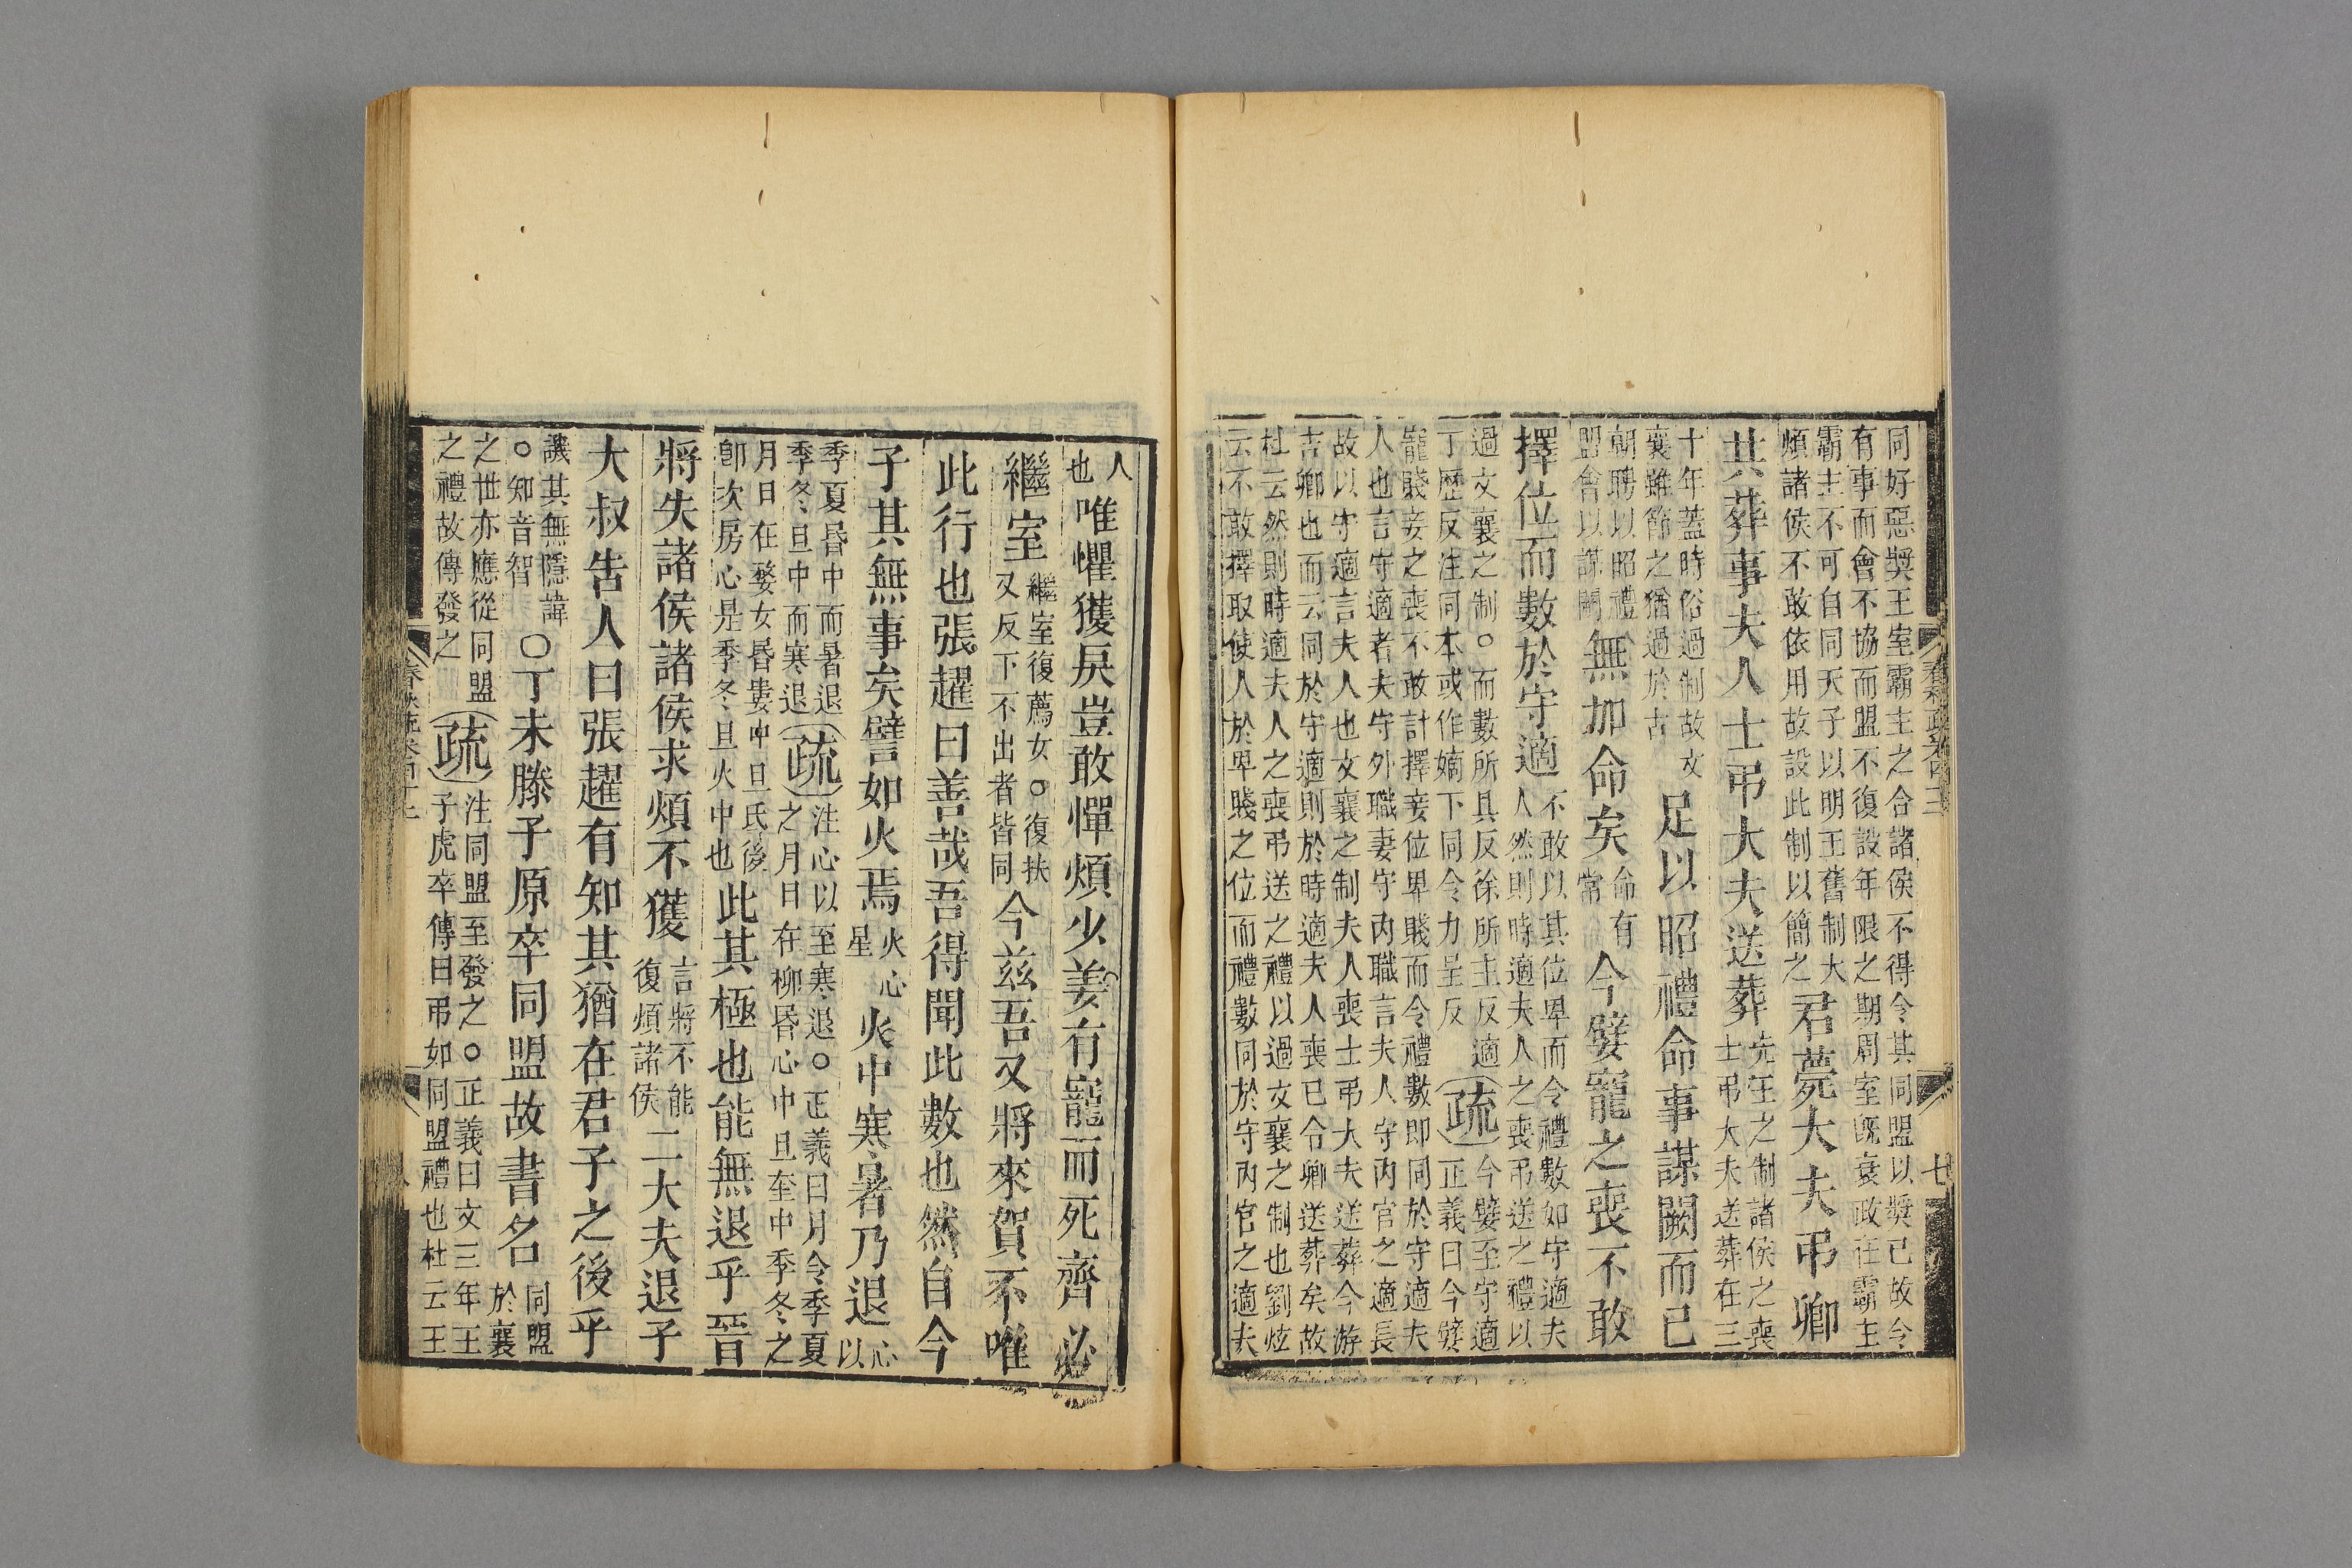 同好惡獎王室霸主之合諸侯不得令其同盟以獎己故令
有事而會不協而盟不復設年限之期周室旣衰政在霸主
霸主不可自同天子以明王舊制大
煩諸侯不敢依用故設此制以簡之
君薨大夫弔卿
共葬事夫人士弔大夫送葬
先王之制諸侯之喪
士弔大夫送葬在三
十年蓋時俗過制故文
襄雖節之猶過於古
足以昭禮命事謀闕而已
朝聘以昭禮
盟會以謀闕
無加命矣
命有
常
今嬖寵之喪不敢
擇位而數於守適
不敢以其位卑而令禮數如守適夫
人然則時適夫人之喪弔送之禮以
過文襄之制○而數所具反徐所主反適
丁歷反注同本或作嫡下同令力呈反
疏
今嬖至守適
正義曰今嬖
寵賤妾之喪不敢計擇妾位卑賤而令禮數即同於守適夫
人也言守適者夫守外職妻守內職言夫人守內官之適長
故以守適言夫人也文襄之制夫人喪士弔大夫送葬今游
吉卿也而云同於守適則於時適夫人喪已令卿送葬矣故
杜云然則時適夫人之喪弔送之禮以過文襄之制也劉炫
云不敢擇取使人於卑賤之位而禮數同於守內官之適夫
人
也
唯懼獲戾豈敢憚煩少姜有寵而死齊必
繼室
繼室復薦女○復扶
又反下不出者皆同
今茲吾又將來賀不唯
此行也張趯曰善哉吾得聞此數也然自今
子其無事矣譬如火焉
火心
星
火中寒暑乃退
心
以
季夏昏中而暑退
季冬旦中而寒退
疏
注心以至寒退○正義曰月令季夏
之月日在柳昏心中旦奎中季冬之
月日在婺女昏婁中旦氐後
卽次房心是季冬旦火中也
此其極也能無退乎晉
將失諸侯諸侯求煩不獲
言將不能
復煩諸侯
二大夫退子
大叔告人曰張趯有知其猶在君子之後乎
譏其無隱諱
○知音智
○丁未滕子原卒同盟故書名
同盟
於襄
之世亦應從同盟
之禮故傳發之
疏
注同盟至發之○正義曰文三年王
子虎卒傳曰弔如同盟禮也杜云王